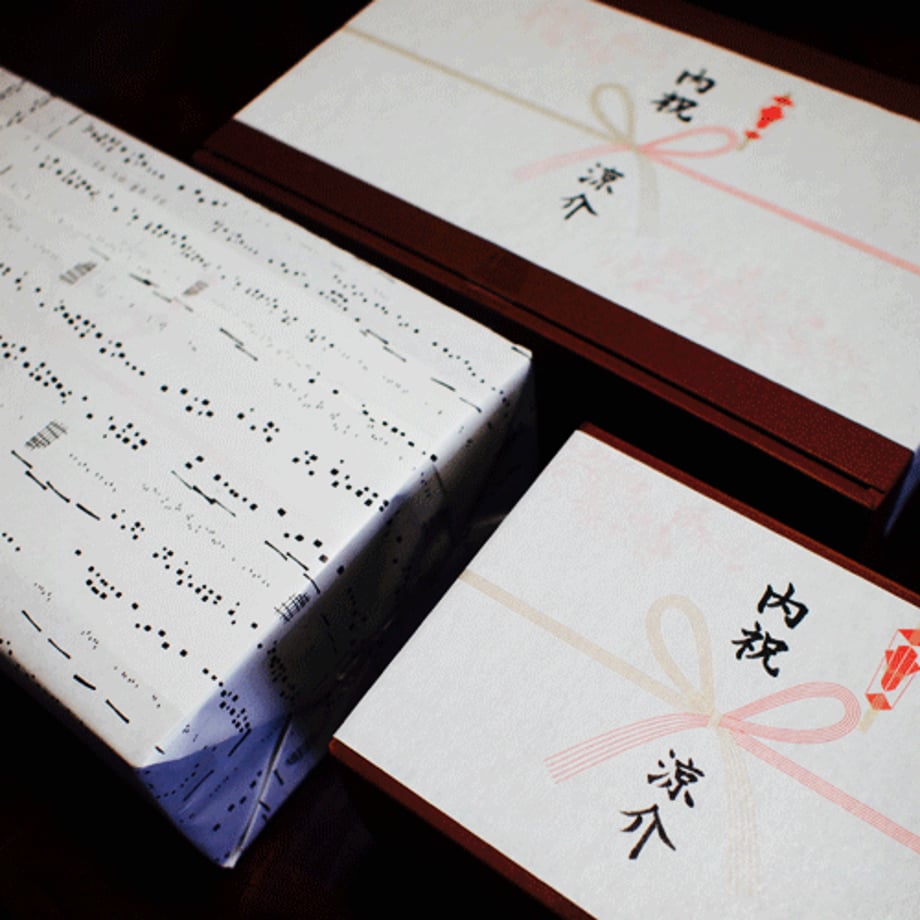 内祝
涼介
内祝
涼介